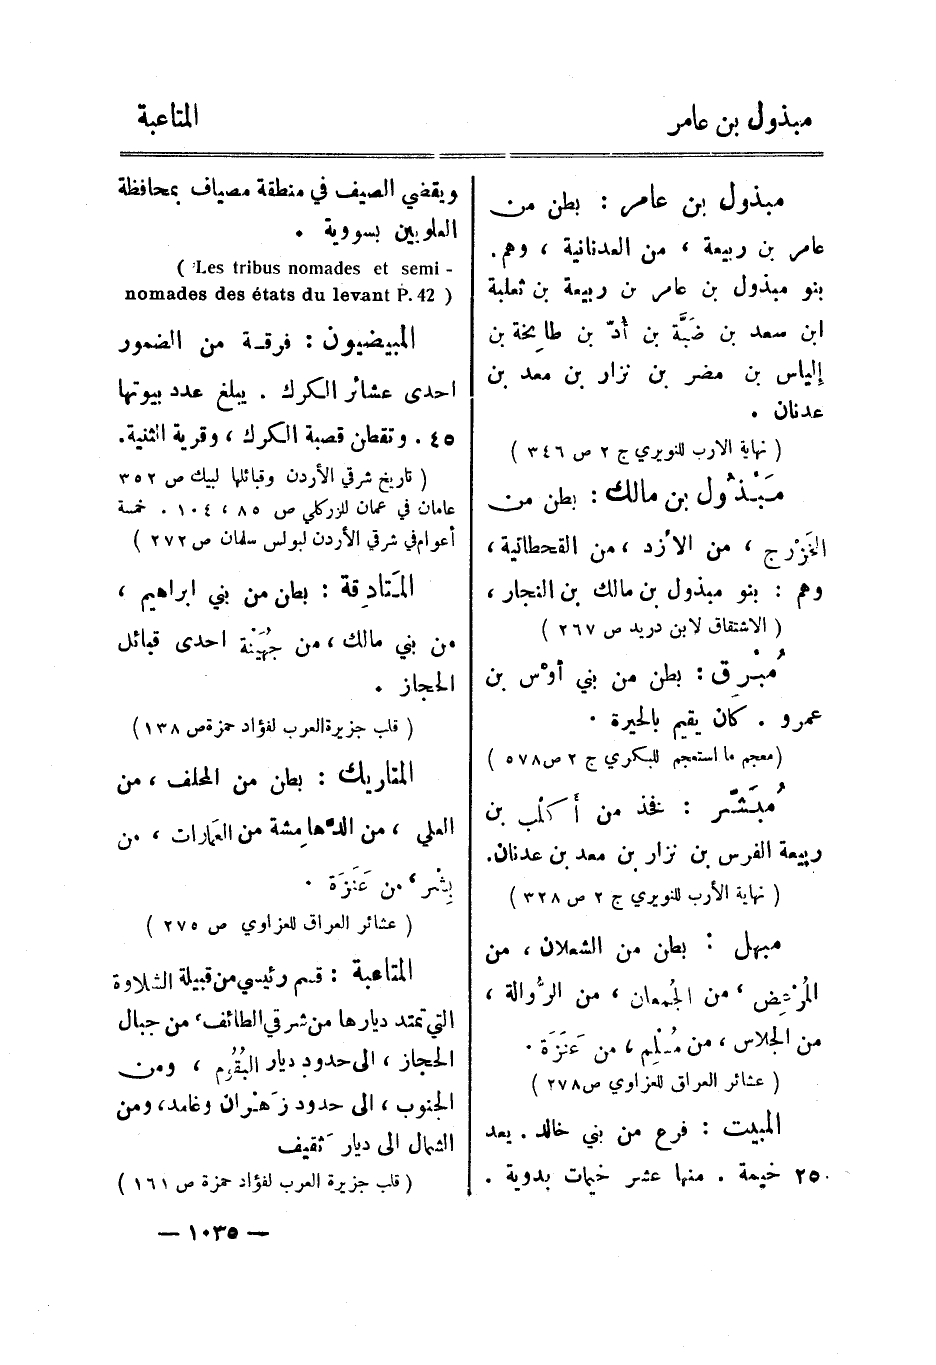 مبذول بن عامر
المتاعبة
مبذول بن عامر : بطن من
عامر بن ربيعة ، من العدنانية ، وهم .
بنو مبذول بن عامر بن ربيعة بن ثعلبة
ابن سعد بن ضَبَّة بن أدّ بن طابخة بن
إلياس بن مضر بن نزار بن معد بن
عدنان .
( نهاية الارب للنويري ج ٢ ص ٣٤٦ )
مَبْذُول بن مالك : بطن من
الخَزْرج ، من الأزد ، من القحطانية ،
وهم : بنو مبذول بن مالك بن النجار ،
( الاشتقاق لابن دريد ص ٢٦٧ )
مُبْرق : بطن من بني أوْس بن
عمرو . كان يقيم بالحيرة .
( معجم ما استعجم للبكري ج ٢ ص ٥٧٨ )
مُبَشّر : فخذ من أكلُب بن
ربيعة الفرس بن نزار بن معد بن عدنان .
( نهاية الأرب للنويري ج ٢ ص ٣٢٨ )
مبهل : بطن من الشعلان ، من
المُرْعِض ، من الجُمعان ، من الرُّوالة ،
من الجلاس ، من مُسْلِم ، من عَنَزَة .
( عشائر العراق للعزاوي ص ٢٧٨ )
المبيت : فرع من بني خالد . يعد
٢٥٠ خيمة . منها عشر خيمات بدوية .
ويقضي الصيف في منطقة مصياف بمحافظة
العلويين بسورية .
( Les tribus nomades et semi -
nomades des états du levant P. 42 )
المبيضيون : فرقة من الضمور
احدى عشائر الكرك . يبلغ عدد بيوتها
٤٥ . وتقطن قصبة الكرك ، وقرية الثنية .
( تاريخ شرقي الأردن وقبائلها لبيك ص ٣٥٢
عامان في عمان للزركلي ص ٨٥ ، ١٠٤ . خمسة
أعوام في شرقي الأردن لبولس سلمان ص ٢٧٢ )
المَتادِقة : بطن من بني ابراهيم ،
من بني مالك ، من جُهَيْنَة احدى قبائل
الحجاز .
( قلب جزيرة العرب لفؤاد حمزة ص ١٣٨ )
المتاريك : بطن من المخلف ، من
العلي ، من الدَّهامِشة من العمَارات ، من
بِشْر ، من عَنَزَة .
( عشائر العراق للعزاوي ص ٢٧٥ )
المتاعبة : قسم رئيسي من قبيلة الشلاوة
التي تمتد ديارها من شرقي الطائف ، من جبال
الحجاز ، الى حدود ديار البُقُوم ، ومن
الجنوب ، الى حدود زَهْران وغامد ، ومن
الشمال الى ديار ثَقيف
( قلب جزيرة العرب لفؤاد حمزة ص ١٦١ )
— ١٠٣٥ —